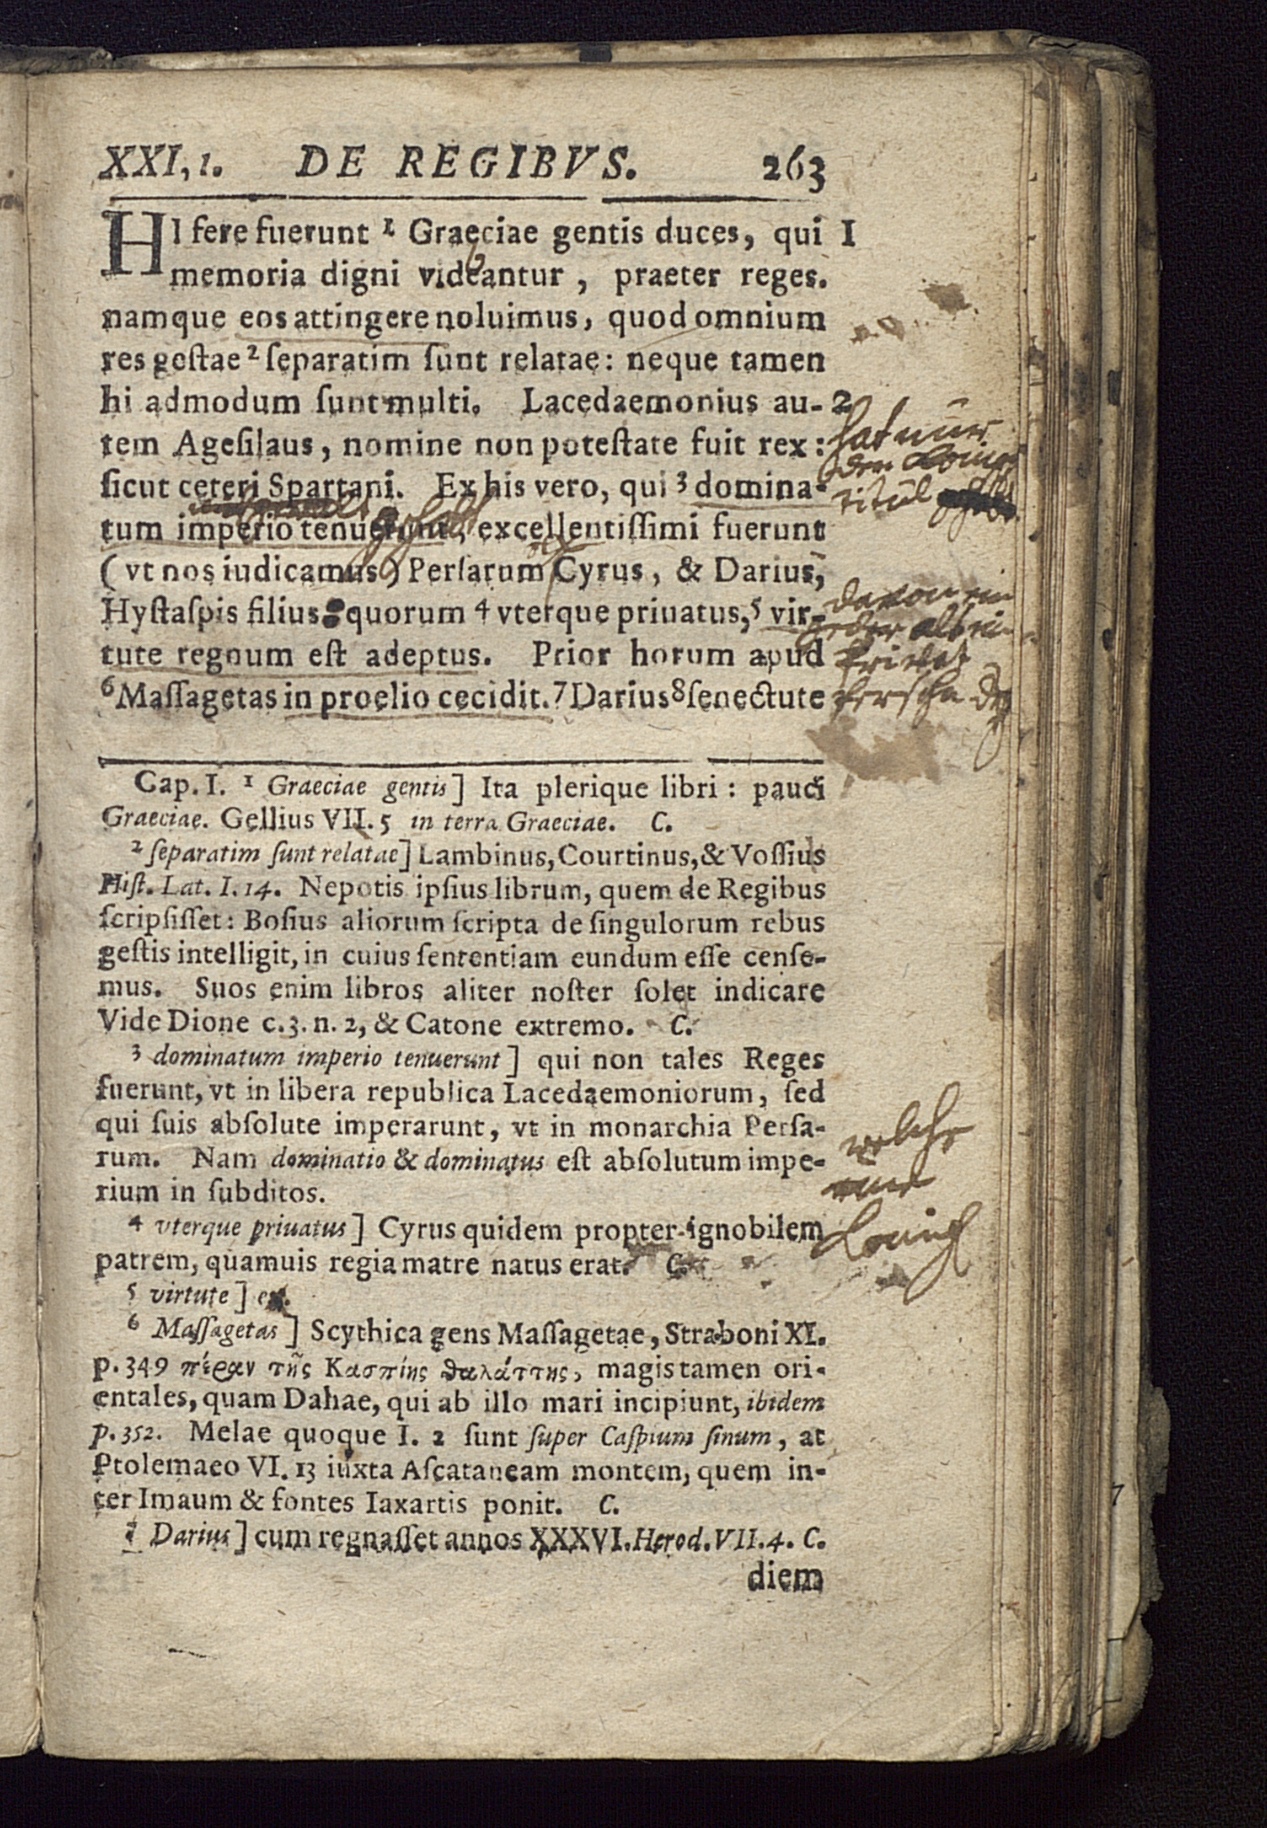 XXI, 1. DE REGIBVS. 263
HI fere fuerunt ¹ Graeciae gentis duces, qui 1
memoria digni videantur, praeter reges.
namque eos attingere noluimus, quod omnium
res gestae ² ſeparatim ſunt relatae: neque tamen
hi admodum ſunt multi. Lacedaemonius au- 2
tem Ageſilaus, nomine non poteſtate fuit rex:
ſicut ceteri Spartani. Ex his vero, qui ³ domina-
tum imperio tenuerunt, excellentiſſimi fuerunt
(vt nos iudicamus) Perſarum Cyrus, & Darius,
Hyſtaſpis filius: quorum ⁴ vterque priuatus, ⁵ vir-
tute regnum eſt adeptus. Prior horum apud
⁶ Maſſagetas in proelio cecidit. ⁷ Darius ⁸ ſenectute
hat nur
den König
titül
davon ein
jeder als ein
privat
welche
eine
König
Cap. I. ¹ Graeciae gentis] Ita plerique libri: pauci
Graeciae. Gellius VII. 5 in terra Graeciae. C.
² ſeparatim ſunt relatae] Lambinus, Courtinus, & Voſſius
Hiſt. Lat. I. 14. Nepotis ipſius librum, quem de Regibus
ſcripſiſſet: Boſius aliorum ſcripta de ſingulorum rebus
geſtis intelligit, in cuius ſententiam eundum eſſe cenſe-
mus. Suos enim libros aliter noſter ſolet indicare
Vide Dione c. 3. n. 2, & Catone extremo. C.
³ dominatum imperio tenuerunt] qui non tales Reges
fuerunt, vt in libera republica Lacedaemoniorum, ſed
qui ſuis abſolute imperarunt, vt in monarchia Perſa-
rum. Nam dominatio & dominatus eſt abſolutum impe-
rium in ſubditos.
⁴ vterque priuatus] Cyrus quidem propter ignobilem
patrem, quamuis regia matre natus erat. C.
⁵ virtute] ex.
⁶ Maſſagetas] Scythica gens Maſſagetae, Straboni XI.
p. 349 πέραν τῆς Κασπίης θαλάττης, magis tamen ori-
entales, quam Dahae, qui ab illo mari incipiunt, ibidem
p. 352. Melae quoque I. 2 ſunt ſuper Caſpium ſinum, at
Ptolemaeo VI. 13 iuxta Aſcataneam montem, quem in-
ter Imaum & fontes Iaxartis ponit. C.
⁷ Darius] cum regnaſſet annos XXXVI. Herod. VII. 4. C.
diem